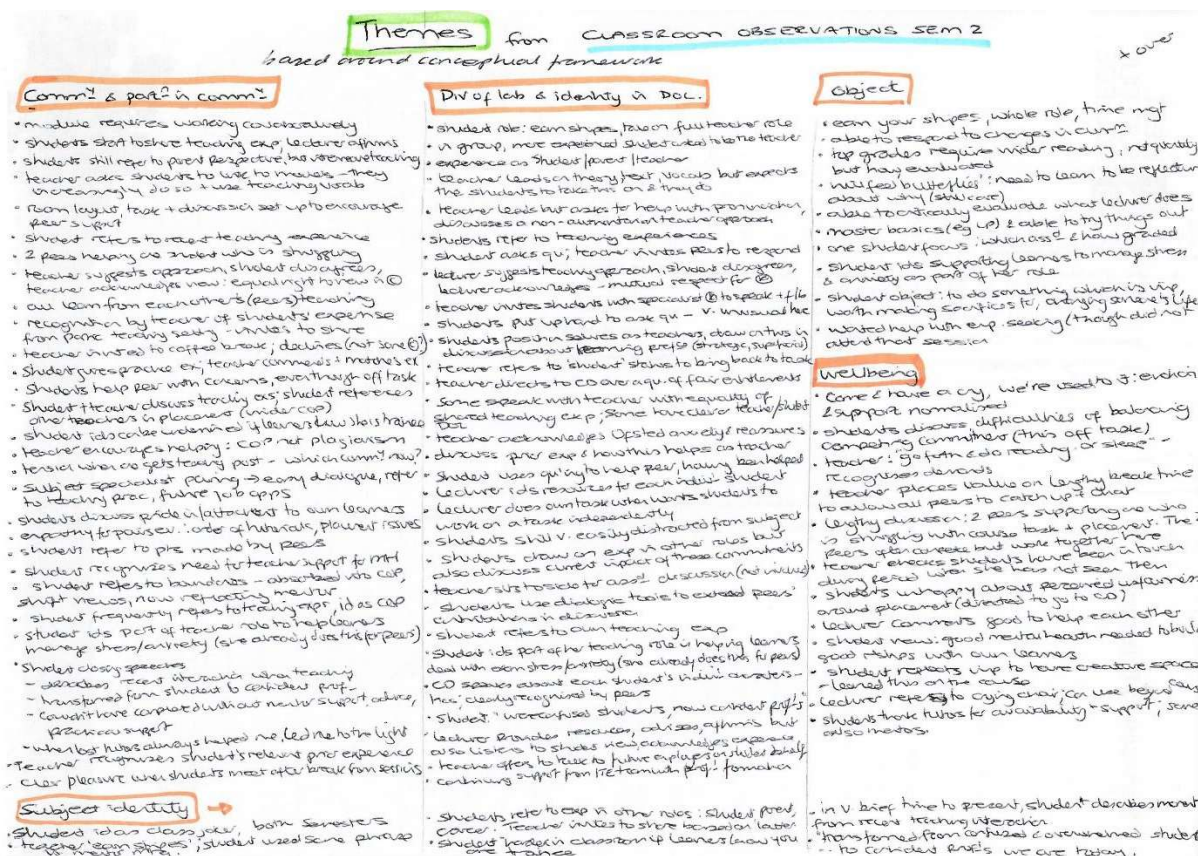 Themes from CLASSROOM OBSERVATIONS SEM 2
based around conceptual framework
+ over
Commy & partn in commy
• module requires working collaboratively
• students start to share teaching exp, lecturer affirms
• students still refer to parent perspective, but more teaching
• teacher asks students to link to models - they
increasingly do so + use teaching vocab
• room layout, task + discussion set up to encourage
peer support
• student refers to recent teaching experience
• 2 peers helping one student who is struggling
• teacher suggests approach, student disagrees,
teacher acknowledges view: equal right to view in
• all learn from each other's (peers) teaching
• recognition by teacher of students' expertise
from teaching setting - invites to share
• teacher invited to coffee break; declines (not same
• student gives practice ex; teacher comments + matches ex
• students help peer with concerns, even though off task
• student + teacher discuss teaching exs; student references
other teachers in placement (wider cop)
• student ids can be undermined if learners know she is trainee
• teacher encourages helping: COP not plagiarism
• tension when one gets teaching post - which commy now?
• subject specialist pairing → easy dialogue, refer
to teaching prac, future job apps
• students discuss pride in/attachment to own learners
• empathy for peers: order of tutorials, placement issues
• student refer to pts made by peers
• student recognizes need for teacher support for MH
• student refers to boundaries - absorbed into cop,
shift views, now repeating mentor
• student frequently refers to teaching expr, id as cop
• student ids part of teacher role to help learners
manage stress/anxiety (she already does this for peers)
• student closing speeches
- describes recent interaction when teaching
- transformed from student to confident prof-
- couldn't have completed without mentor support, advice,
practical support
- when lost tutors always helped me, led me to the light
• Teacher recognizes student's relevant prior experience
• clear pleasure when students meet after break from sessions
Subject identity →
• student id as class joker, both semesters
• teacher 'earn stripes'; student used same phrase
Div of lab & identity in DOL.
• student role: earn stripes, take on full teacher role
• in group, more experienced student asked to be the teacher
• experience as student/parent/teacher
• teacher leads on theory text, vocab but expects
the students to take this on & they do
• teacher leads but asks for help with pronunciation,
discusses a non-authoritarian teacher approach
• students refer to teaching experiences
• student asks qu; teacher invites peers to respond
• lecturer suggests teaching approach, student disagrees,
lecturer acknowledges - mutual respect for
• teacher invites students with specialist to speak + f/b
• students put up hand to ask qu - v. unusual here
• students position selves as teachers, draw on this in
discussion about learning prefs (strategic, superficial)
• teacher refers to 'student' status to bring back to task
• teacher directs to CD over a qu. of fair entitlements
• Some speak with teacher with equality of
shared teaching exp; Some have clear teacher/student
DOL
• teacher acknowledges Ofsted anxiety & reassures
• discuss prior exp & how this helps as teacher
• Student uses qu'ing to help peer, having been helped
• Lecturer ids resources to each indiv student
• Lecturer does own task when wants students to
work on a task independently
• students still v. easily distracted from subject
• students draw on exp in other roles but
also discuss current impact of these commitments
• teacher sits to side for asst discussion (not involved)
• students use dialogic tools to extend peers'
contributions in discussion
• student refers to own teaching exp
• student ids part of her teaching role in helping learners
deal with exam stress/anxiety (she already does this for peers)
• CD speaks about each student's indiv characters -
this clearly recognised by peers
• Student "we're confused students, now confident profs"
• Lecturer provides resources, advises, affirms but
also listens to student view, acknowledges experience
• teacher offers to talk to future employers on students behalf
• continuing support from ITE team with profl formation
• students refer to exp in other roles: student parent,
career. Teacher invites to share based on latter
• student harder in classroom if learners know you
are trainee
Object
• earn your stripes, whole role, time mgt
• able to respond to changes in currm
• top grades require wider reading; not quantity
but how evaluated
• 'nullified butterflies': need to learn to be reflective
about why (still care)
• able to critically evaluate what lecturer does
• master basics (eg LP) & able to try things out
• one student focus: which asst & how graded
• student ids supporting learners to manage stress
& anxiety as part of her role
• student object: to do something which is vimp,
worth making sacrifices for, changing someone's life
• wanted help with emp. seeking (though did not
attend that session
Wellbeing
• Come & have a cry, we're used to it: emotion
& support normalised
• students discuss difficulties of balancing
competing commitments (this off task)
• teacher: "go forth & do reading: or sleep" -
recognises demands
• teacher places value on lengthy break time
to allow all peers to catch up & chat
• Lengthy discussion: 2 peers supporting one who
is struggling with course task + placement. The
peers often compete but work together here
• teacher checks students have been in touch
during period when she has not seen them
• students unhappy about perceived unfairness
around placement (directed to go to CD)
• Lecturer comments good to help each other
• student views: good mental health needed to build
good r'ships with own learners
• student reports vimp to have creative space
- learned this on the course
• Lecturer refers to crying chair; can use beyond course
• students thank tutors for availability + support; some
also mentors.
• in v brief time to present, student describes moment
from recent teaching interaction
• "transformed from confused & overwhelmed student
... to confident profs we are today."